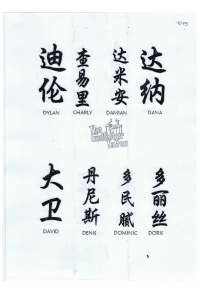 迪伦 查易里 达米安 达纳
DYLAN CHARLY DAMIAN DANA
大卫 丹尼斯 多民腻 多丽丝
DAVID DENIS DOMINIC DORIS